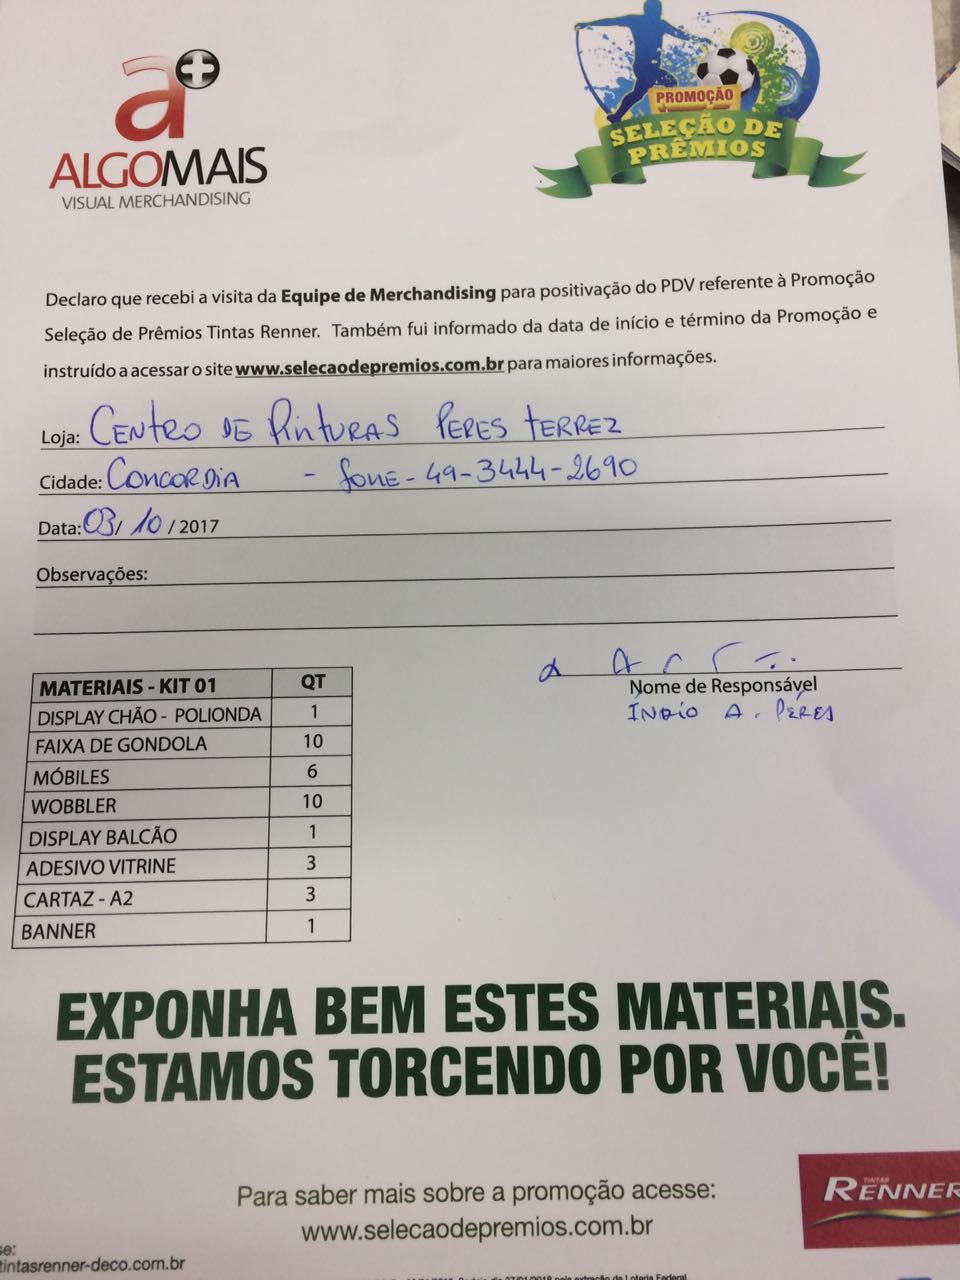 a+
ALGOMAIS
VISUAL MERCHANDISING
PROMOÇÃO
SELEÇÃO DE
PRÊMIOS
Declaro que recebi a visita da Equipe de Merchandising para positivação do PDV referente à Promoção
Seleção de Prêmios Tintas Renner. Também fui informado da data de início e término da Promoção e
instruído a acessar o site www.selecaodepremios.com.br para maiores informações.
Loja: CENTRO DE PINTURAS PERES TERREZ
Cidade: CONCORDIA - FONE - 49-3444-2690
Data: 03/ 10 / 2017
Observações:
Nome de Responsável
ÍNDIO A. PÉRES
MATERIAIS - KIT 01 QT
DISPLAY CHÃO - POLIONDA 1
FAIXA DE GONDOLA 10
MÓBILES 6
WOBBLER 10
DISPLAY BALCÃO 1
ADESIVO VITRINE 3
CARTAZ - A2 3
BANNER 1
EXPONHA BEM ESTES MATERIAIS.
ESTAMOS TORCENDO POR VOCÊ!
Para saber mais sobre a promoção acesse:
www.selecaodepremios.com.br
TINTAS
RENNER
se:
tintasrenner-deco.com.br
07/01/2018 pela extração da Loteria Federal